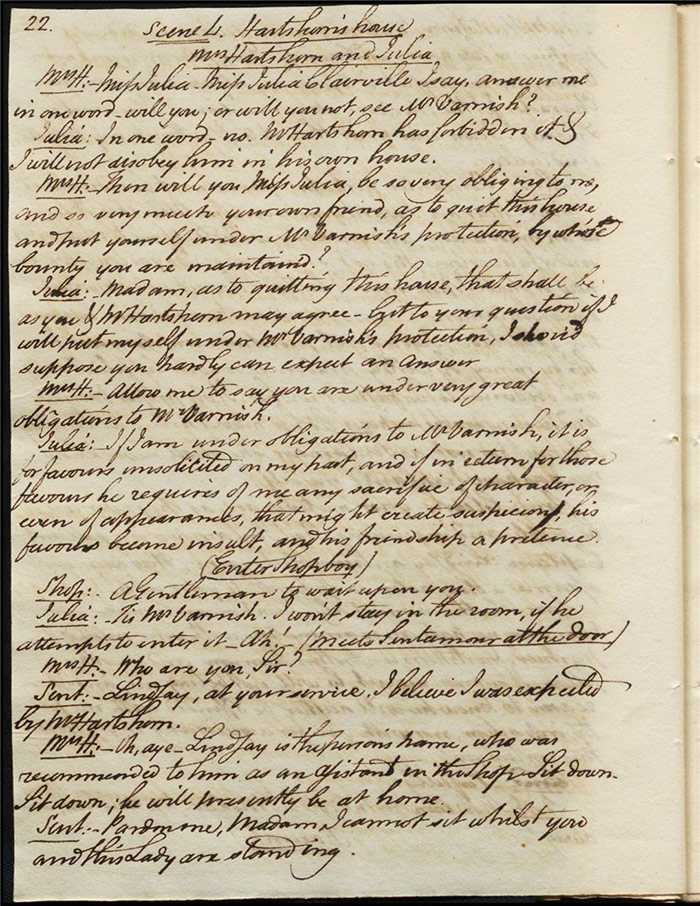 22.
Scene 4. Hartshorn's house
Mrs Hartshorn and Julia
Mrs H:- Miss Julia - Miss Julia Clairville I say, answer me
in one word - will you; or will you not, see Mr Varnish?
Julia: In one word - no. Mr Hartshorn has forbidden it &
I will not disobey him in his own house.
Mrs H:- Then will you, Miss Julia, be so very obliging to me,
and so very much your own friend, as to quit this house
and put yourself under Mr Varnish's protection, by whose
bounty you are maintaind?
Julia:- Madam, as to quitting this house, that shall be
as you & Mr Hartshorn may agree - but to your question if I
will put myself under Mr Varnish's protection, I should
suppose you hardly can expect an answer
Mrs H:- Allow me to say you are under very great
obligations to Mr Varnish.
Julia: If I am under obligations to Mr Varnish, it is
for favours unsolicited on my part, and if in return for those
favours he requires of me any sacrifice of character, or
even of appearances, that might create suspicion, his
favours become insult, and his friendship a pretence.
(Enter Shopboy)
Shop:- A Gentleman to wait upon you.
Julia:- Tis Mr Varnish. I won't stay in the room, if he
attempts to enter it - Ah! - (meets Sentamour at the door)
Mrs H:- Who are you, Sir?
Sent:- Lindsay, at your service. I believe I was expected
by Mr Hartshorn.
Mrs H:- Oh, aye - Lindsay is the person's name, who was
recommended to him as an assistant in the Shop. Sit down -
Sit down; he will presently be at home.
Sent:- Pardon me, Madam, I cannot sit whilst you
and this Lady are standing.